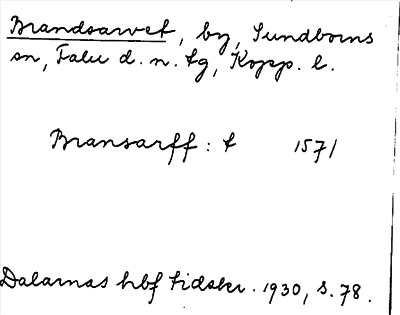 Brandsarvet, by, Sundborns
sn, Falu d. n. tg, Kopp. l.
Bransarff: t 1571
Dalarnas hbf tidskr. 1930, s. 78.